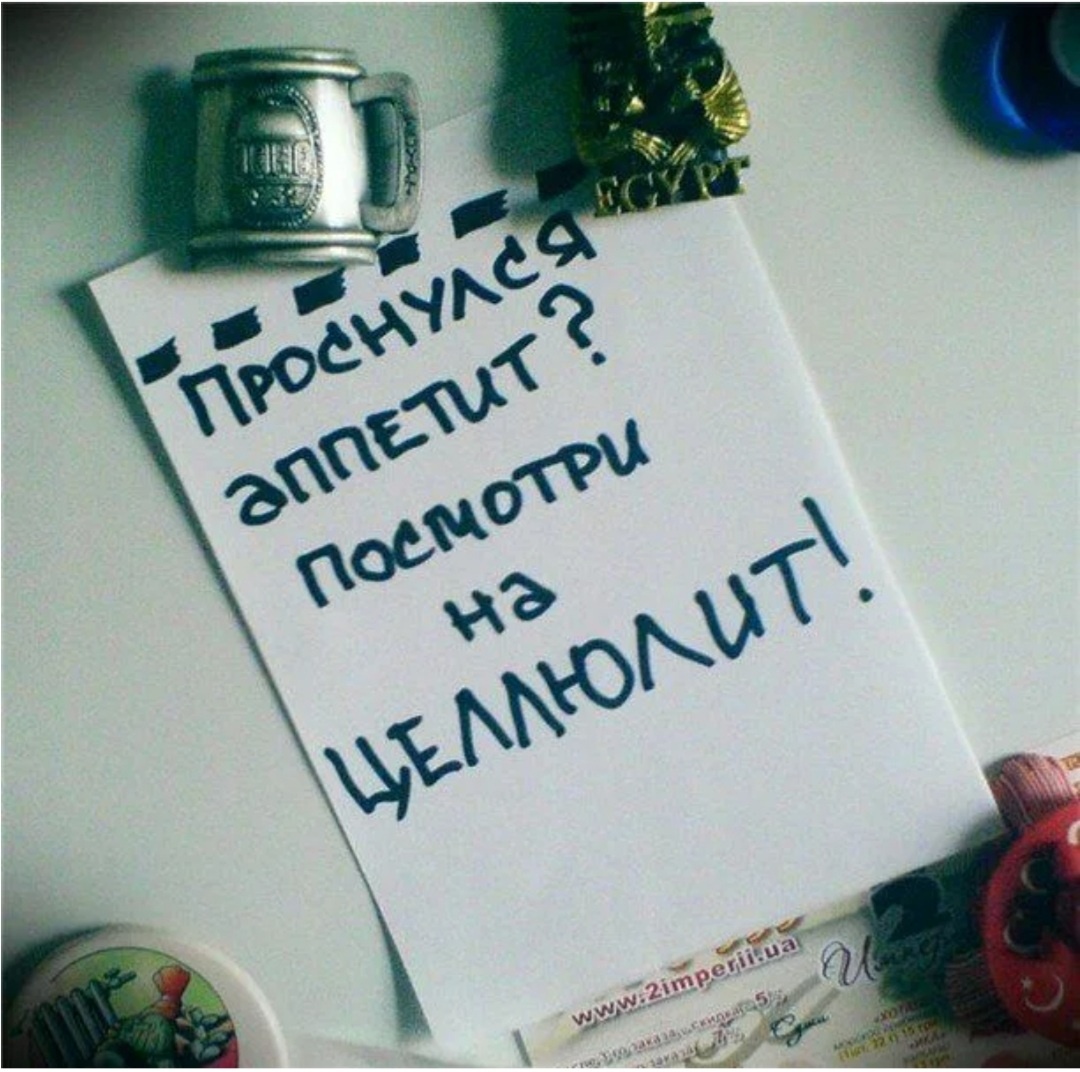 EGYPT
Проснулся
аппетит?
посмотри
на
ЦЕЛЛЮЛИТ!
www.2imperii.ua